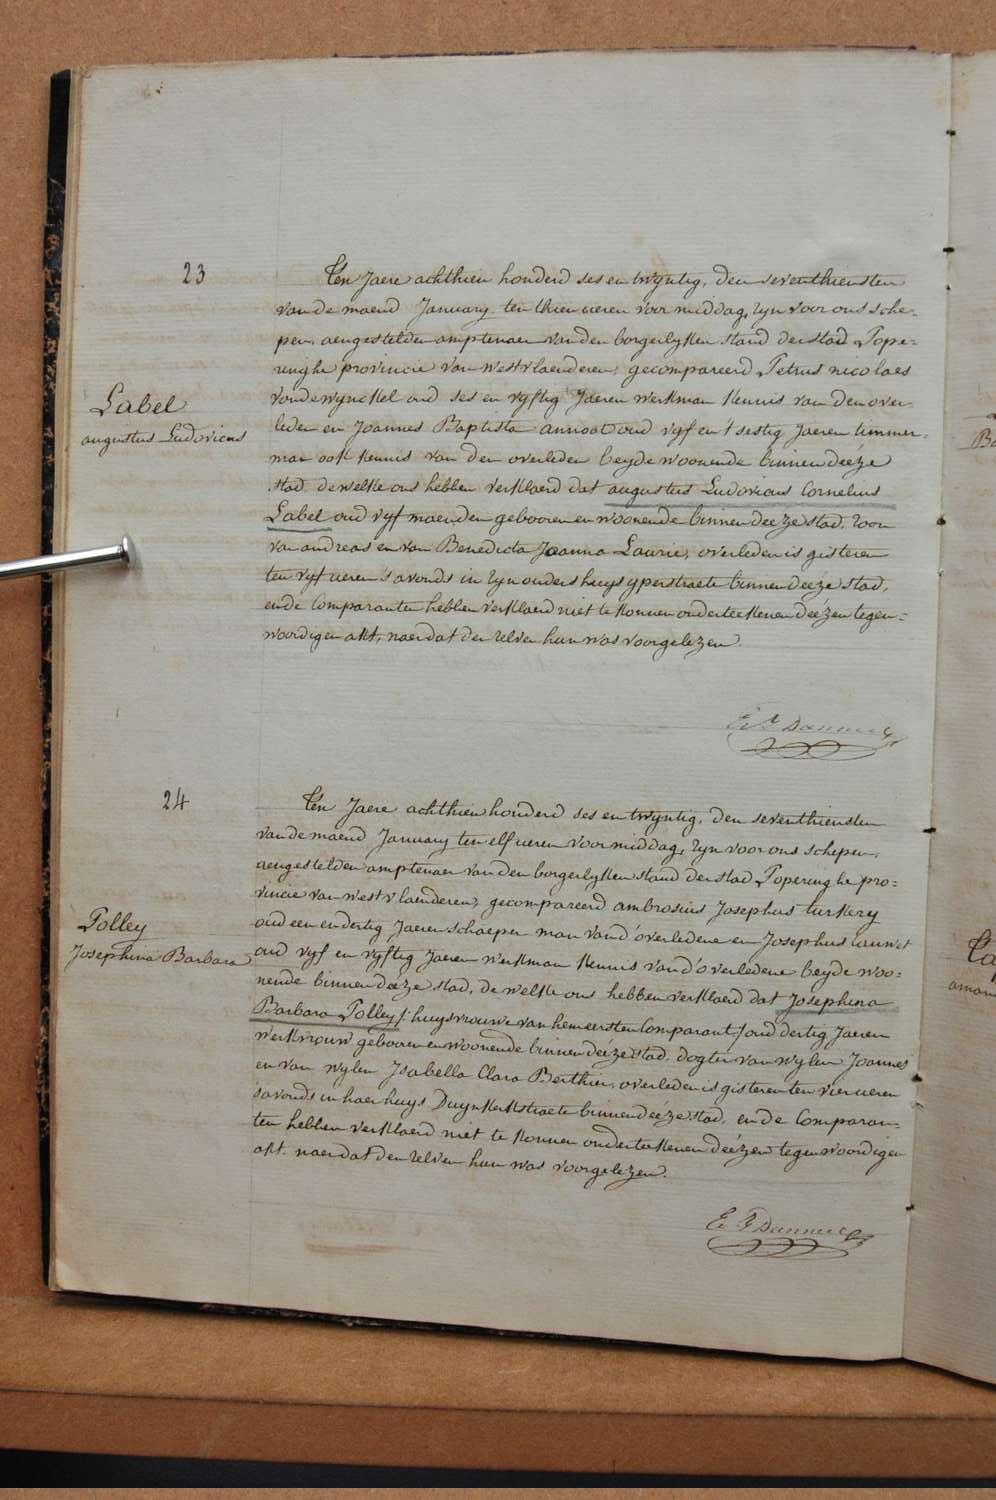 23
Label
augustus Ludovicus
Ten Jaere achthien honderd ses en twyntig, den seventhiensten
van de maend January ten thien ueren voor middag, zyn voor ons sche-
pen, aengestelden amptenaer van den borgerlyken stand der stad Pope-
ringhe provincie van westvlaenderen, gecompareerd Petrus nicolaes
vandewynckel oud ses en vyftig Jaeren werkman kennis van den over-
leden en Joannes Baptista annoot oud vyf en 't sestig Jaeren timmer-
man ook kennis van den overleden beyde woonende binnen deeze
stad, dewelke ons hebben verklaerd dat augustus Ludovicus Cornelius
Label oud vyf maenden gebooren en woonende binnen deeze stad, zoon
van andreas en van Benedicta Joanna Laurie, overleden is gisteren
ten vyf ueren s'avonds in zyn ouders huys yperstraete binnen deéze stad,
en de Comparanten hebben verklaerd niet te konnen onderteekenen deézen tegen-
woordigen akt, naer dat den zelven hun was voorgelezen.
24
Polley
Josephina Barbara
Ten Jaere achthien honderd ses en twyntig, den seventhiensten
van de maend January ten elf ueren voormiddag, zyn voor ons schepen,
aengestelden amptenaer van den borgerlyken stand der stad Poperinghe pro-
vincie van westvlaenderen, gecompareerd ambrosius Josephus turkery
oud een en dertig Jaeren schaeper man van d'overledene en Josephus lauwet
oud vyf en vyftig Jaeren werkman kennis van d'overledene beyde woo-
nende binnen deeze stad, de welke ons hebben verklaerd dat Josephina
Barbara Polley /:huysvrouwe van hem eersten Comparant:/ oud dertig Jaeren
werkvrouw gebooren en woonende binnen deéze stad, dogter van wylen Joannes
en van wylen Isabella Clara Berthier, overleden is gisteren ten vier ueren
s'avonds in haer huys Duynkerkstraete binnen deéze stad, en de Comparan-
ten hebben verklaerd niet te konnen onderteekenen deézen tegenwoordigen
akt, naer dat den zelven hun was voorgelezen.